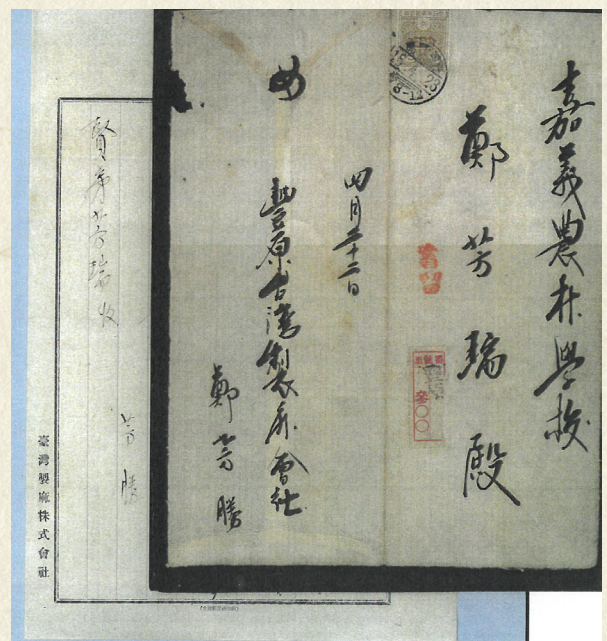 嘉義農林學校
鄭芳瑞殿
書留
四月二十二日
豐原台湾製麻會社
鄭芳勝
賢弟芳瑞收
芳勝
臺灣製麻株式會社